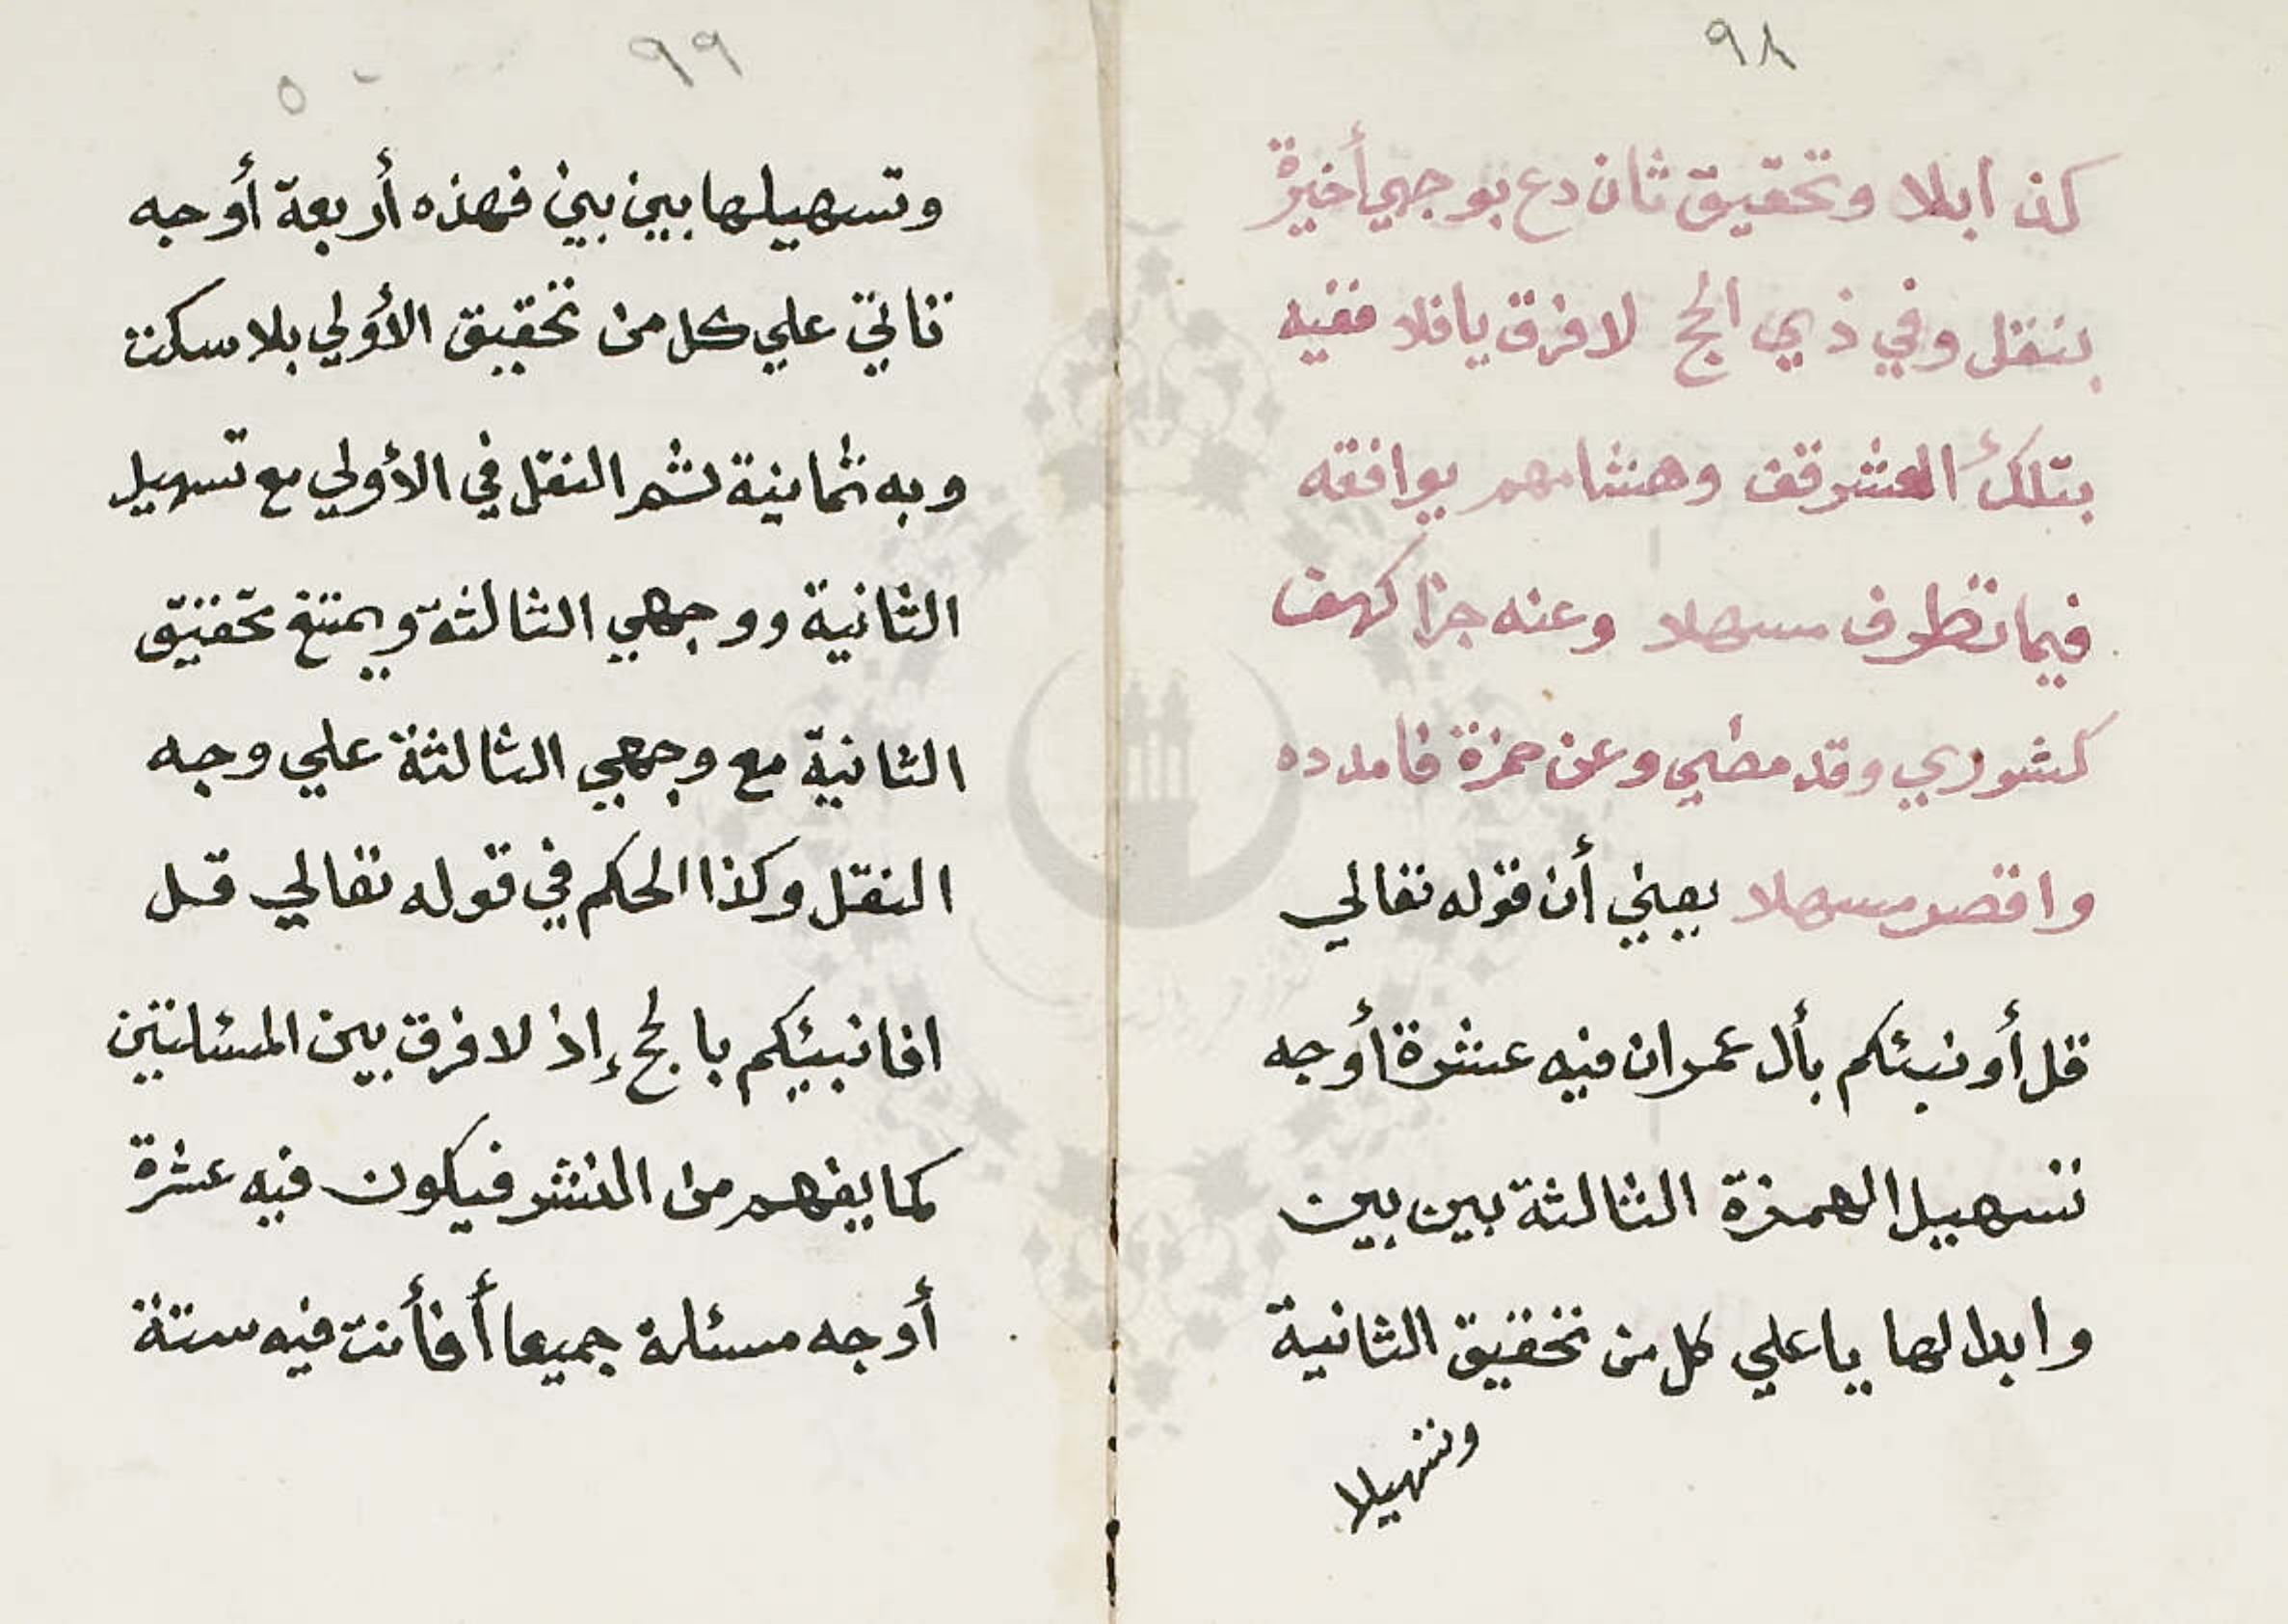 ٩٨
كذ ابلا وتحقيق ثان دع بوجهي أخيرة
بنقل وفي ذي الحج لا فرق يافلا ففيه
بتلك العشر قف وهشامهم يوافقه
فيما تطرف مسهلا وعنه جزا كهف
كشوري وقد مضي وعن حمزة فامدده
واقصر مسهلا يعني أن قوله تعالي
قل أونبئكم بأل عمران فيه عشرة أوجه
تسهيل الهمزة الثالثة بين بين
وابدالها يا علي كل من تحقيق الثانية
وتسهيلها
٩٩
وتسهيلها بين بين فهذه أربعة أوجه
تاتي علي كل من تحقيق الأولي بلا سكت
وبه ثمانية ثم النقل في الأولي مع تسهيل
الثانية ووجهي الثالثة ويمتنع تحقيق
الثانية مع وجهي الثالثة علي وجه
النقل وكذا الحكم في قوله تعالي قل
افانبيئكم بالحج إذ لا فرق بين المسئلتين
كما يفهم من النشر فيكون فيه عشرة
أوجه مسئلة جميعا أفأنت فيه ستة